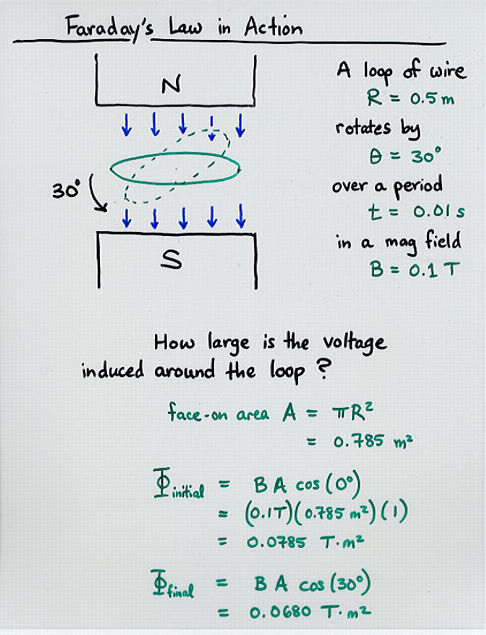 Faraday's Law in Action
N
30°
S
A loop of wire
R = 0.5 m
rotates by
θ = 30°
over a period
t = 0.01 s
in a mag field
B = 0.1 T
How large is the voltage
induced around the loop?
face-on area A = πR²
= 0.785 m²
Φinitial = B A cos(0°)
= (0.1T)(0.785 m²)(1)
= 0.0785 T·m²
Φfinal = B A cos(30°)
= 0.0680 T·m²